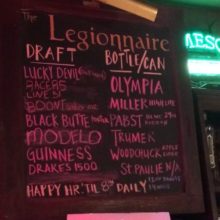 The
Legionnaire
DRAFT
LUCKY DEVIL
RACER 5
LINE 51
BOONT
BLACK BUTTE PORTER
MODELO
GUINNESS
DRAKE'S 1500
BOTTLE/CAN
OLYMPIA
MILLER HIGH LIFE
PABST
TRUMER
WOODCHUCK APPLE CIDER
ST PAULIE N/A
HAPPY HR. 'TIL 8 DAILY